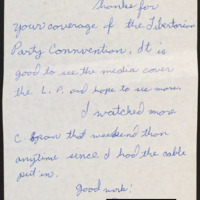 Thanks for
your coverage of the Libertarian
Party Connvention, It is
good to see the media cover
the L. P. and hope to see more.
I watched more
C. Span that weekend than
anytime since I had the cable
put in.
Good work!